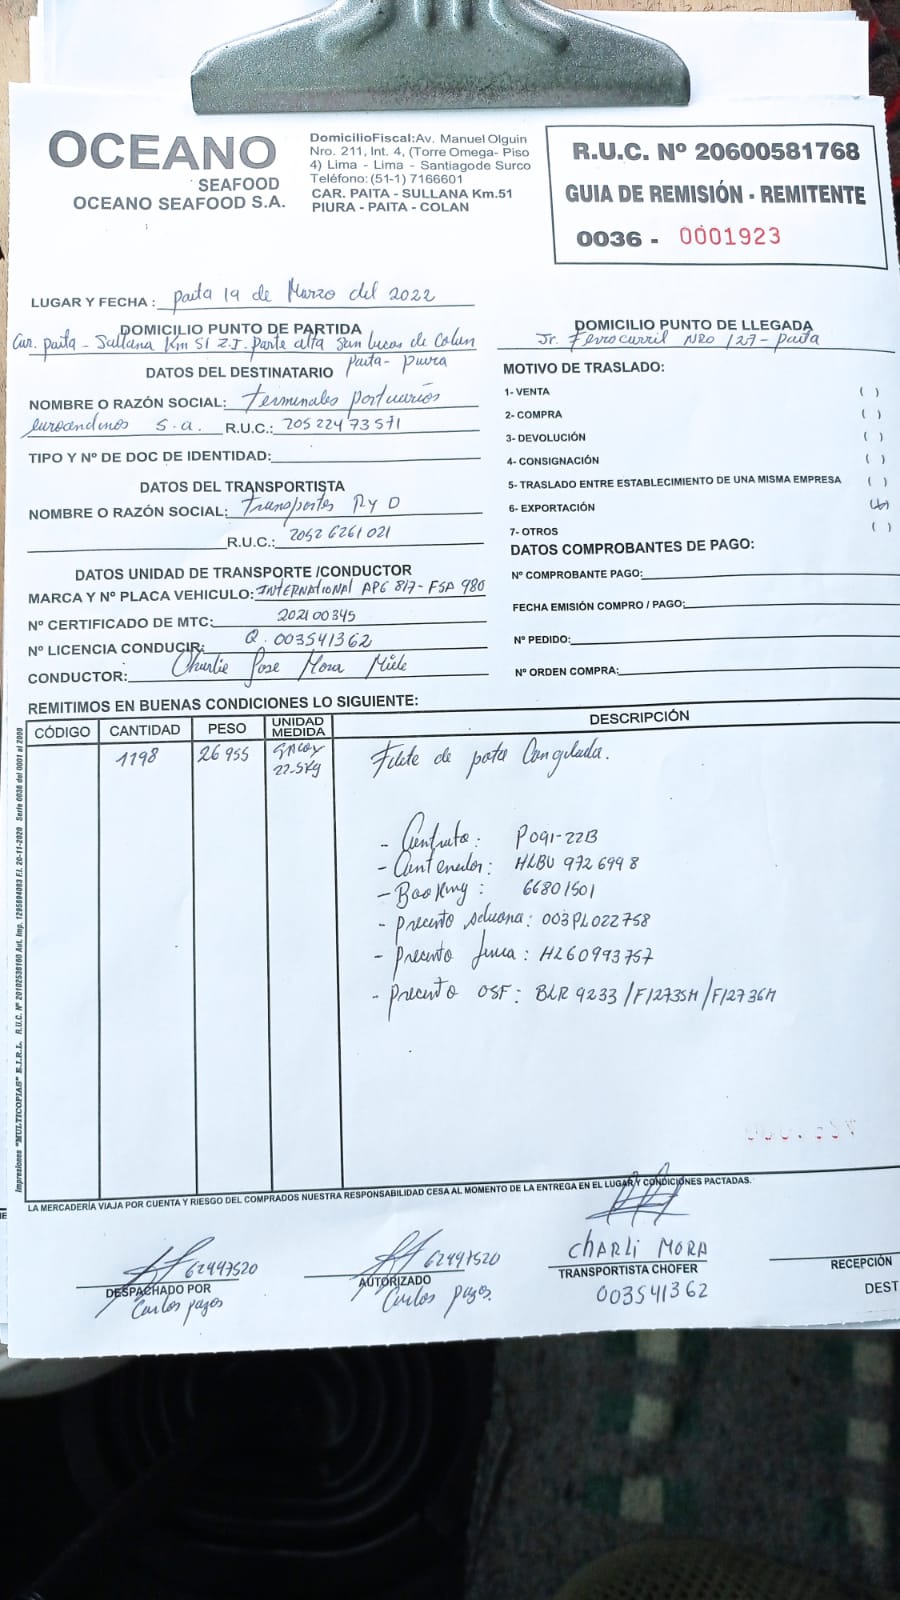 OCEANO
SEAFOOD
OCEANO SEAFOOD S.A.
DomicilioFiscal:Av. Manuel Olguin
Nro. 211, Int. 4, (Torre Omega- Piso
4) Lima - Lima - Santiagode Surco
Teléfono: (51-1) 7166601
CAR. PAITA - SULLANA Km.51
PIURA - PAITA - COLAN
R.U.C. Nº 20600581768
GUIA DE REMISIÓN - REMITENTE
0036 - 0001923
LUGAR Y FECHA : paita 19 de Marzo del 2022
DOMICILIO PUNTO DE PARTIDA
Car. paita - Sullana Km 51 Z.I. Parte alta San Lucas de Colan
Paita - Piura
DOMICILIO PUNTO DE LLEGADA
Jr. Ferrocarril NRO 127 - paita
DATOS DEL DESTINATARIO
NOMBRE O RAZÓN SOCIAL: Terminales portuarios
euroandinos S.a. R.U.C.: 20522473571
TIPO Y Nº DE DOC DE IDENTIDAD:
DATOS DEL TRANSPORTISTA
NOMBRE O RAZÓN SOCIAL: Transportes R y D
R.U.C.: 20526261021
DATOS UNIDAD DE TRANSPORTE /CONDUCTOR
MARCA Y Nº PLACA VEHICULO: INTERNATIONAL AP6 817 - FSA 980
Nº CERTIFICADO DE MTC: 202100345
Nº LICENCIA CONDUCIR: Q. 003541362
CONDUCTOR: Charlie Jose Mora
MOTIVO DE TRASLADO:
1- VENTA ( )
2- COMPRA ( )
3- DEVOLUCIÓN ( )
4- CONSIGNACIÓN ( )
5- TRASLADO ENTRE ESTABLECIMIENTO DE UNA MISMA EMPRESA ( )
6- EXPORTACIÓN
7- OTROS ( )
DATOS COMPROBANTES DE PAGO:
Nº COMPROBANTE PAGO:
FECHA EMISIÓN COMPRO / PAGO:
Nº PEDIDO:
Nº ORDEN COMPRA:
REMITIMOS EN BUENAS CONDICIONES LO SIGUIENTE:
CÓDIGO CANTIDAD PESO UNIDAD MEDIDA DESCRIPCIÓN
1198 26 955 22.5Kg Filete de pota Congelada.
- Contrato: P091-22B
- Contenedor: HLBU 972 699 8
- Booking: 66801501
- Precinto Aduana: 003PL022758
- Precinto Linea: HL60993757
- Precinto OSF: BLR 9233 / F12735M / F12736M
Impresiones "MULTICOPIAS" E.I.R.L. R.U.C. Nº 20102536160 Aut. Imp. 1295894083 F.I. 20-11-2020 Serie 0036 del 0001 al 2000
LA MERCADERÍA VIAJA POR CUENTA Y RIESGO DEL COMPRADOS NUESTRA RESPONSABILIDAD CESA AL MOMENTO DE LA ENTREGA EN EL LUGAR Y CONDICIONES PACTADAS.
62447520
DESPACHADO POR
Carlos pazos
62447520
AUTORIZADO
Carlos pazos
CHARLI MORA
TRANSPORTISTA CHOFER
003541362
RECEPCIÓN
DEST